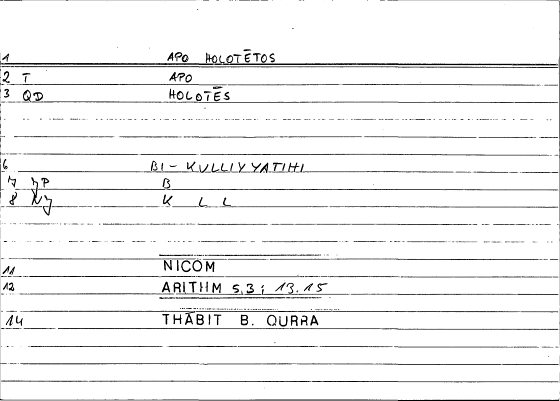 1 APO HOLOTĒTOS
2 T APO
3 QD HOLOTĒS
6 BI-KULLIYYATIHI
7 JP B
8 NJ K L L
11 NICOM
12 ARITHM 5,3; 13.15
14 THĀBIT B. QURRA